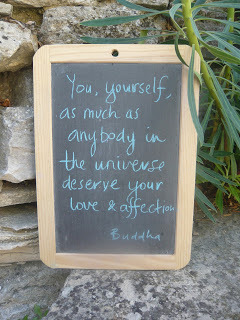 You, yourself,
as much as
anybody in
the universe
deserve your
love & affection
Buddha